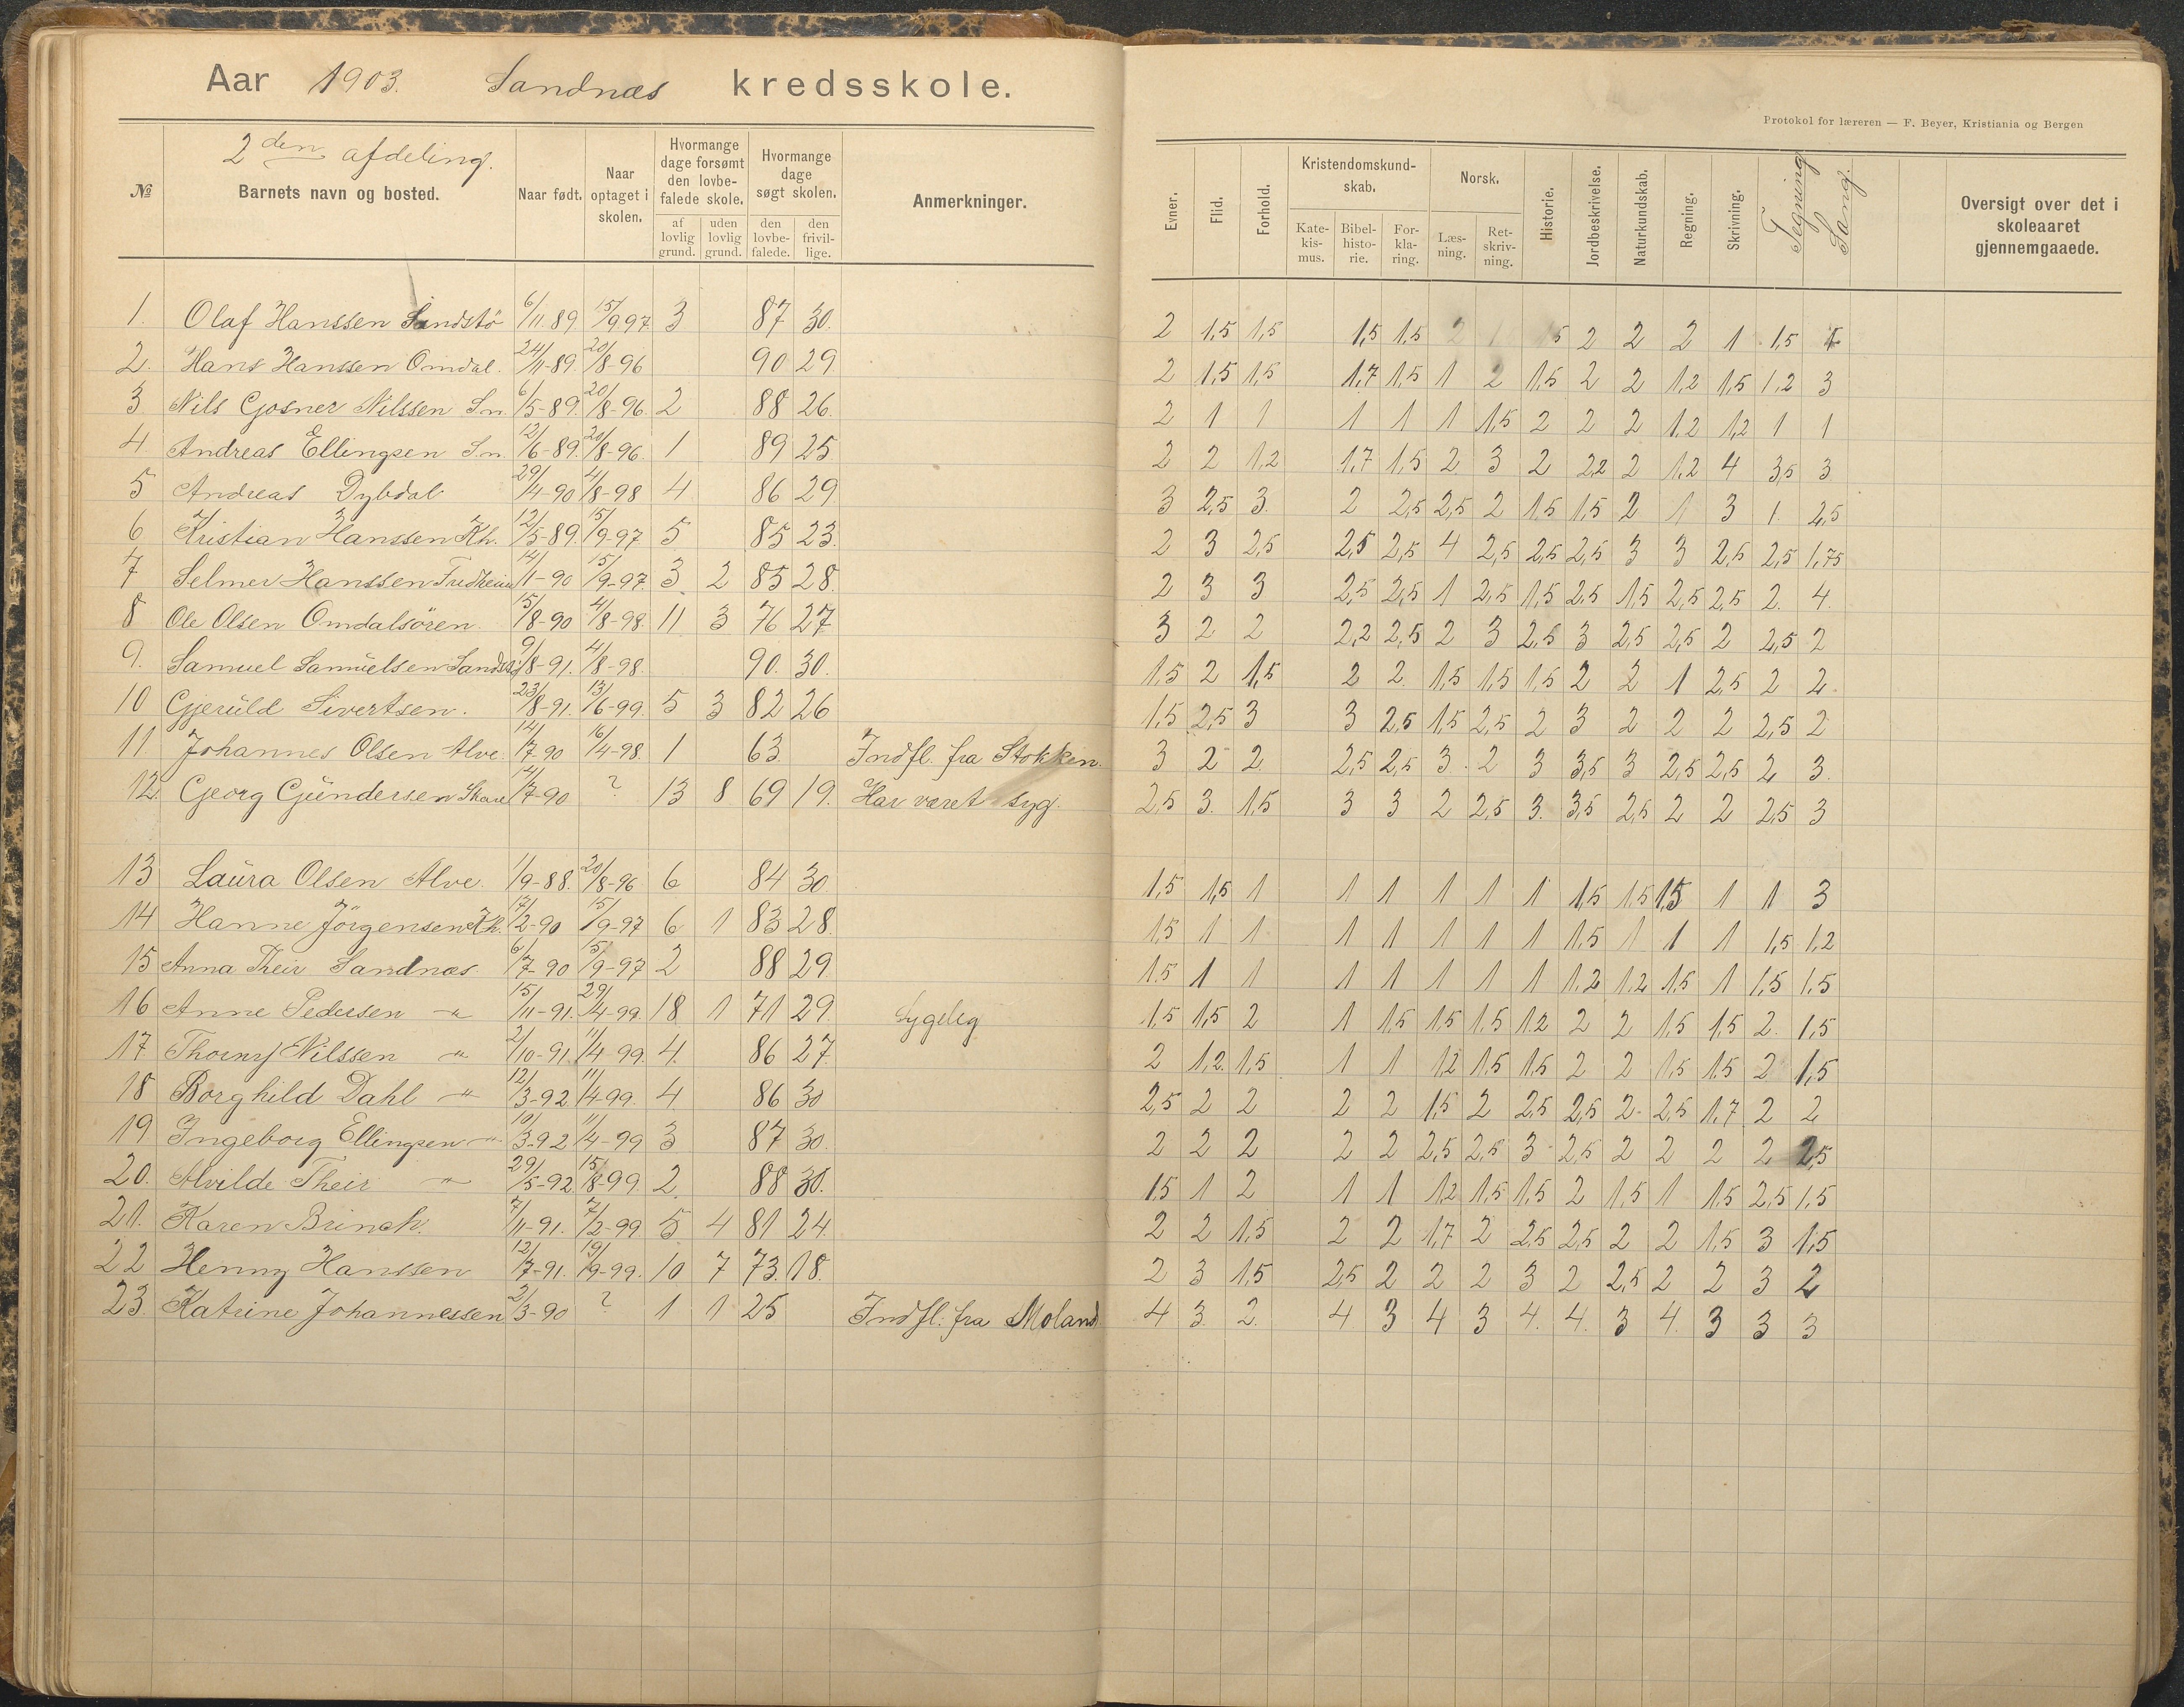 Aar 1903. Sandnæs kredsskole.
Protokol for læreren — F. Beyer, Kristiania og Bergen
№
2den afdeling.
Barnets navn og bosted.
Naar født.
Naar optaget i skolen.
Hvormange dage forsømt den lovbefalede skole.
af lovlig grund.
uden lovlig grund.
Hvormange dage søgt skolen.
den lovbefalede.
den frivillige.
Anmerkninger.
Evner.
Flid.
Forhold.
Kristendomskundskab.
Katekismus.
Bibelhistorie.
Forklaring.
Norsk.
Læsning.
Retskrivning.
Historie.
Jordbeskrivelse.
Naturkundskab.
Regning.
Skrivning.
Tegning
Sang.
Oversigt over det i skoleaaret gjennemgaaede.
1. Olaf Hanssen Sandstö 6/11 89 15/9 97 3 87 30. 2 1,5 1,5 1,5 1,5 2 1 1,5 2 2 2 1 1,5
2. Hans Hanssen Omdal. 24/11-89. 20/8-96 90 29 2 1,5 1,5 1,7 1,5 1 2 1,5 2 2 1,2 1,5 1,2 3
3 Nils Gosner Nilssen Sn. 6/5-89. 20/8-96. 2 88 26. 2 1 1 1 1 1 1,5 2 2 2 1,2 1,2 1 1
4 Andreas Ellingsen Sn. 12/6-89. 20/8-96. 1 89 25 2 2 1,2 1,7 1,5 2 3 2 2,2 2 1,2 4 3,5 3
5 Andreas Dybdal 29/4-90 4/8-98 4 86 29 3 2,5 3. 2 2,5 2,5 2 1,5 1,5 2 1 3 1. 2,5
6 Kristian Hanssen Kh. 12/5-89. 15/9-97 5 85 23. 2 3 2,5 2,5 2,5 4 2,5 2,5 2,5 3 3 2,5 2,5 1,75
7 Selmer Hanssen Fredheim 14/1-90 15/9-97. 3 2 85 28. 2 3 3 2,5 2,5 1 2,5 1,5 2,5 1,5 2,5 2,5 2. 4.
8 Ole Olsen Omdalsören. 15/8-90 4/8-98. 11 3 76 27. 3 2 2 2,2 2,5 2 3 2,5 3 2,5 2,5 2 2,5 2
9. Samuel Samuelsen 9/8-91. 4/8-98. 90. 30. 1,5 2 1,5 2 2. 1,5 1,5 1,5 2 2 1 2,5 2 2.
10 Gjeruld Sivertsen. 23/8-91. 13/6-99. 5 3 82 26 1,5 2,5 3 3 2,5 1,5 2,5 2 3 2 2 2 2,5 2
11. Johannes Olsen Alve. 14/7-90 16/4-98. 1 63. Indfl. fra Stokken. 3 2 2. 2,5 2,5 3. 2 3 3,5 3 2,5 2,5 2 3.
12. Georg Gundersen Skare 14/7-90 ? 13 8 69 19. Har været syg. 2,5 3. 1,5 3 3 2 2,5 3. 3,5 2,5 2 2 2,5 3
13 Laura Olsen Alve. 1/9-88. 20/8-96 6 84 30 1,5 1,5 1 1 1 1 1 1 1,5 1,5 1,5 1 1 3
14 Hanne Jörgensen Kh. 17/2-90 15/9-97 6 1 83 28. 1,5 1 1 1 1 1 1 1 1,5 1 1 1 1,5 1,2
15 Anna Their Sandnæs 6/7-90 15/9-97 2 88 29. 1,5 1 1 1 1 1 1 1 1,2 1,2 1,5 1 1,5 1,5
16 Anne Pedersen -"- 15/11-91. 29/4-99. 18 1 71 29. Sygelig 1,5 1,5 2 1 1,5 1,5 1,5 1,2 2 2 1,5 1,5 2. 1,5
17 Thorny Nilssen " 2/10-91. 11/4-99. 4. 86 27. 2 1,2. 1,5 1 1 1,2 1,5 1,5 2 2 1,5 1,5 2 1,5
18 Borghild Dahl -"- 12/3-92 11/4-99. 4. 86 30 2,5 2 2 2 2 1,5 2 2,5 2,5 2 2,5 1,7 2 2
19 Ingeborg Ellingsen -"- 10/3-92 11/4-99 3 87 30. 2 2 2 2 2 2,5 2,5 3 2,5 2 2 2 2 2,5
20. Alvilde Their -"- 29/5-92 15/8-99. 2. 88 30. 1,5 1 2 1 1 1,2 1,5 1,5 2 1,5 1 1,5 2,5 1,5
21. Karen Brinch. 7/11-91. 7/2-99 5 4 81 24. 2 2 1,5 2 2 1,7 2 2,5 2,5 2 2 1,5 3 1,5
22 Henny Hanssen 12/7-91. 19/9-99. 10 7 73. 18. 2 3 1,5 2,5 2 2 2 3 2 2,5 2 2 3 2
23. Katrine Johannessen 2/3-90 ? 1 1 25 Indfl. fra Moland 4 3. 2. 4 3 4 3 4. 4. 3 4. 3 3 3